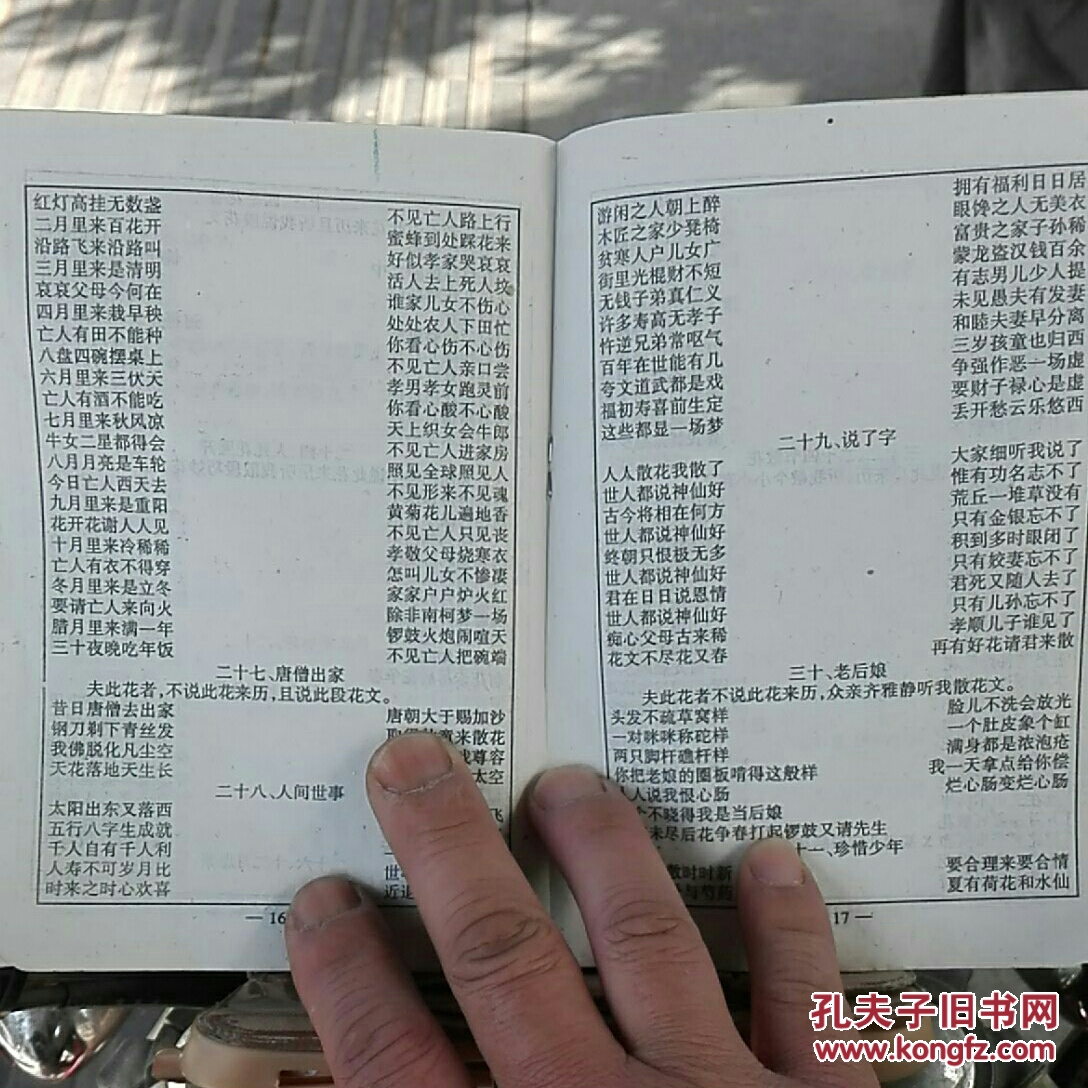 红灯高挂无数盏 不见亡人路上行
二月里来百花开 蜜蜂到处踩花来
沿路飞来沿路叫 好似孝家哭哀哀
三月里来是清明 活人去上死人坟
哀哀父母今何在 谁家儿女不伤心
四月里来栽早秧 处处农人下田忙
亡人有田不能种 你看心伤不心伤
八盘四碗摆桌上 不见亡人亲口尝
六月里来三伏天 孝男孝女跑灵前
亡人有酒不能吃 你看心酸不心酸
七月里来秋风凉 天上织女会牛郎
牛女二星都得会 不见亡人进家房
八月月亮是车轮 照见全球照见人
今日亡人西天去 不见形来不见魂
九月里来是重阳 黄菊花儿遍地香
花开花谢人人见 不见亡人只见丧
十月里来冷稀稀 孝敬父母烧寒衣
亡人有衣不得穿 怎叫儿女不惨凄
冬月里来是立冬 家家户户炉火红
要请亡人来向火 除非南柯梦一场
腊月里来满一年 锣鼓火炮闹喧天
三十夜晚吃年饭 不见亡人把碗端
二十七、唐僧出家
夫此花者,不说此花来历,且说此段花文。
昔日唐僧去出家 唐朝大于赐加沙
钢刀剃下青丝发 来散花
我佛脱化凡尘空 尊容
天花落地天生长 太空
二十八、人间世事
太阳出东又落西 飞
五行八字生成就
千人自有千人利
人寿不可岁月比 世
时来之时心欢喜 近
— 16
游闲之人朝上醉 拥有福利日日居
木匠之家少凳椅 眼馋之人无美衣
贫寒人户儿女广 富贵之家子孙稀
街里光棍财不短 蒙龙盗汉钱百余
无钱子弟真仁义 有志男儿少人提
许多寿高无孝子 未见愚夫有发妻
忤逆兄弟常呕气 和睦夫妻早分离
百年在世能有几 三岁孩童也归西
夸文道武都是戏 争强作恶一场虚
福初寿喜前生定 要财子禄心是虚
这些都显一场梦 丢开愁云乐悠西
二十九、说了字
人人散花我散了 大家细听我说了
世人都说神仙好 惟有功名志不了
古今将相在何方 荒丘一堆草没有
世人都说神仙好 只有金银忘不了
终朝只恨极无多 积到多时眼闭了
世人都说神仙好 只有姣妻忘不了
君在日日说恩情 君死又随人去了
世人都说神仙好 只有儿孙忘不了
痴心父母古来稀 孝顺儿子谁见了
花文不尽花又春 再有好花请君来散
三十、老后娘
夫此花者不说此花来历,众亲齐雅静听我散花文。
头发不疏草窝样 脸儿不洗会放光
一对咪咪称砣样 一个肚皮象个缸
两只脚杆礁杆样 满身都是浓泡疮
你把老娘的圈板啃得这般样 我一天拿点给你偿
人说我恨心肠 烂心肠变烂心肠
个不晓得我是当后娘
未尽后花争春打起锣鼓又请先生
十一、珍惜少年
时时新 要合理来要合情
与芍药 夏有荷花和水仙
17 —
孔夫子旧书网
www.kongfz.com